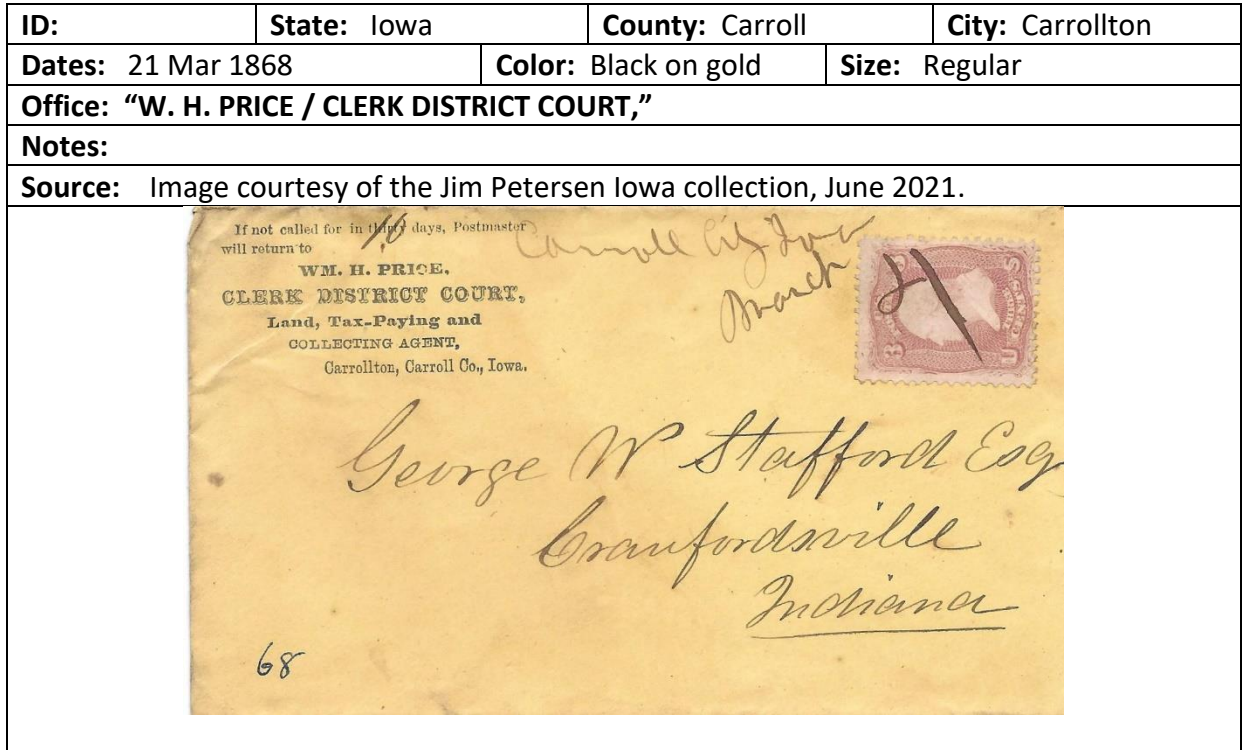 ID: State: Iowa County: Carroll City: Carrollton
Dates: 21 Mar 1868 Color: Black on gold Size: Regular
Office: “W. H. PRICE / CLERK DISTRICT COURT,”
Notes:
Source: Image courtesy of the Jim Petersen Iowa collection, June 2021.
If not called for in thirty days, Postmaster
10
will return to
WM. H. PRICE,
CLERK DISTRICT COURT,
Land, Tax-Paying and
COLLECTING AGENT,
Carrollton, Carroll Co., Iowa.
Carroll City Iowa
March 21
3 CENTS
U S
George W Stafford Esq
Crawfordsville
Indiana
68